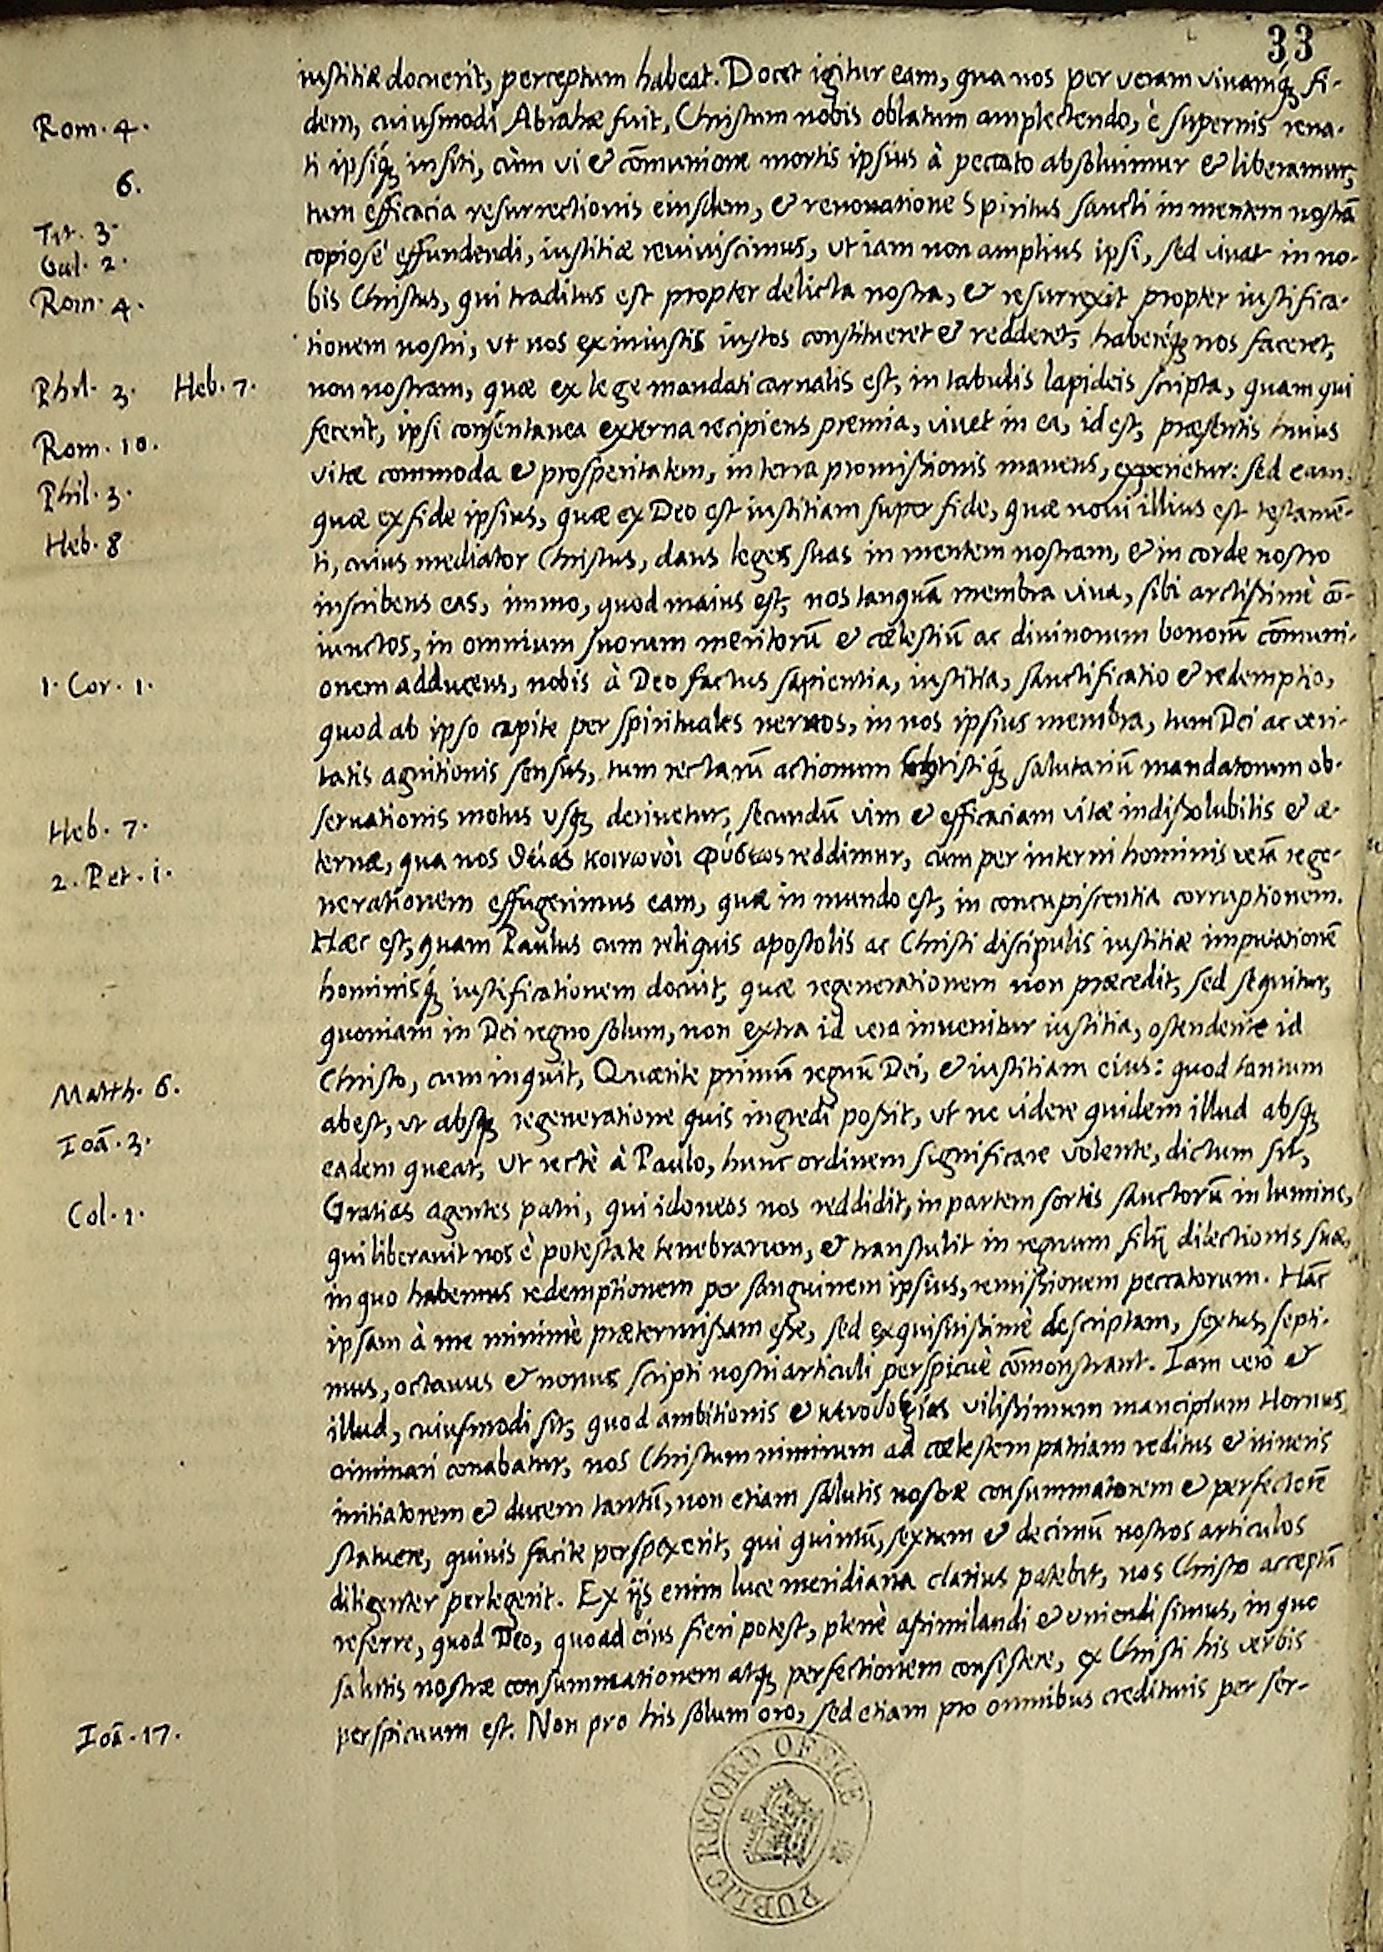 33
iustitiæ docuerit, perceptum habeat. Docet igitur eam, qua nos per veram vivamq́ꝫ fi-
Rom. 4. dem, cuiusmodi Abrahæ fuit, Christum nobis oblatum amplectendo, è supernis rena-
6. ti ipsiq́ꝫ insiti, cùm vi & com̄unione mortis ipsius à peccato absoluimur & liberamur,
tum efficacia resurrectionis eiusdem, & renouatione Spiritus sancti in mentem nostrā
Tit. 3. copiosè effundendi, iustitiæ reuiuiscimus, ut iam non amplius ipsi, sed vivat in no-
Gal. 2.
Rom. 4. bis Christus, qui traditus est propter delicta nostra, & resurrexit propter iustifica-
tionem nostri, ut nos ex iniustis iustos constitueret & redderet, haberéq́ꝫ nos faceret,
Phil. 3. Heb. 7. non nostram, quæ ex lege mandati carnalis est, in tabulis lapideis scripta, quam qui
Rom. 10. fecerit, ipsi consentanea externa recipiens premia, vivet in ea, id est, præsentis huius
vitæ commoda & prosperitatem, in terra promissionis manens, experietur: sed eam,
Phil. 3. quæ ex fide ipsius, quæ ex Deo est iustitiam super fide, quæ novi illius est testamē-
Heb. 8 ti, cuius mediator Christus, dans leges suas in mentem nostram, & in corde nostro
inscribens eas, immo, quod maius est, nos tanquā membra viva, sibi arctissimè cō-
iunctos, in omnium suorum meritorū & cælestiū ac divinorum bonorū com̄uni-
1. Cor. 1. onem adducens, nobis à Deo factus sapientia, iustitia, sanctificatio & redemptio,
quod ab ipso capite per spirituales nervos, in nos ipsius membra, tum Dei ac veri-
tatis agnitionis sensus, tum rectarū actionum Christiq́ꝫ salutariū mandatorum ob-
Heb. 7. seruationis motus usqꝫ deriuetur, secundū vim & efficaciam vitæ indissolubilis & æ-
2. Pet. 1. ternæ, qua nos θείας κοινωνοὶ φύσεως reddimur, cùm per interni hominis verā rege-
nerationem effugerimus eam, quæ in mundo est, in concupiscentia corruptionem.
Hæc est, quam Paulus cum reliquis apostolis ac Christi discipulis iustitiæ imputationē
hominisq́ꝫ iustificationem docuit, quæ regenerationem non præcedit, sed sequitur,
quoniam in Dei regno solum, non extra id vera invenitur iustitia, ostendente id
Matth. 6. Christo, cum inquit, Quærite primū regnū Dei, & iustitiam eius: quod tantum
abest, ut absqꝫ regeneratione quis ingredi possit, ut ne videre quidem illud absqꝫ
Ioā. 3. eadem queat, ut rectè à Paulo, hunc ordinem significare volente, dictum sit,
Col. 1. Gratias agentes patri, qui idoneos nos reddidit, in partem sortis sanctorū in lumine,
qui liberavit nos è potestate tenebrarum, & transtulit in regnum filij dilectionis suæ,
in quo habemus redemptionem per sanguinem ipsius, remissionem peccatorum. Hāc
ipsam à me minimè prætermissam esse, sed exquisitissimè descriptam, sextus, septi-
mus, octavus & nonus scripti nostri articuli perspicuè com̄onstrant. Iam verò &
illud, cuiusmodi sit, quod ambitionis & vilissimum mancipium Hornus
criminari conabatur, nos Christum nimirum ad cælestem patriam reditus & itineris
initiatorem & ducem tantū, non etiam salutis nostræ consummatorem & perfectorē
statuere, quivis facile perspexerit, qui quintū, sextum & decimū nostros articulos
diligenter perlegerit. Ex ijs enim luce meridiana clarius patebit, nos Christo acceptū
referre, quod Deo, quoad eius fieri potest, plenè assimilandi & uniendi simus, in quo
salutis nostræ consummationem atqꝫ perfectionem consistere, ex Christi his verbis
Ioā. 17. perspicuum est. Non pro his solum oro, sed etiam pro omnibus credituris per ser-
PUBLIC RECORD OFFICE